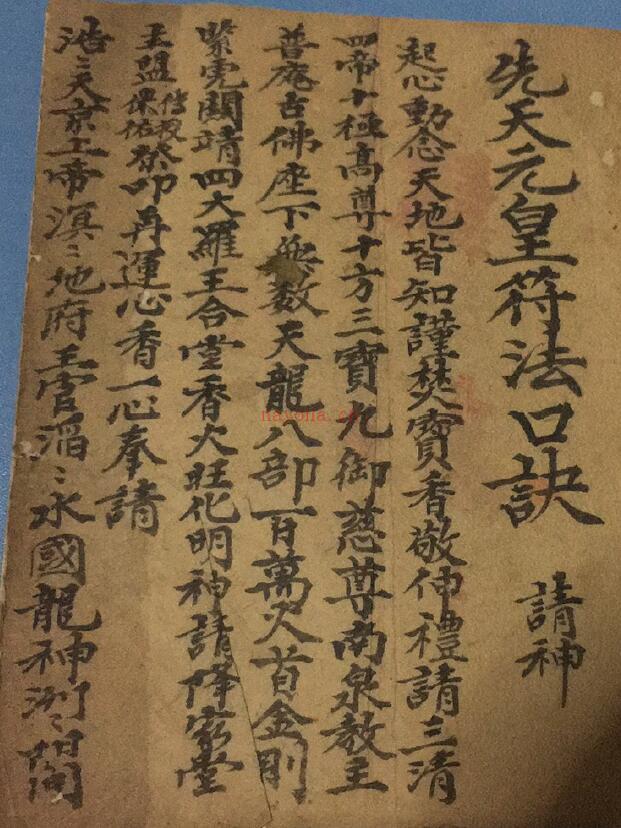 先天元皇符法口訣
請神
起心動念天地皆知謹焚寶香敬伸禮請三清
四帝十極高尊十方三寶九御慈尊南泉教主
普庵古佛座下無数天龍八部百萬火首金剛
紫雲關靖四大羅王合堂香火旺化明神請降家堂
王盟傳教保佑於叩再運心香一心奉請
浩〻天京上帝溟〻地府王官滔〻水國龍神